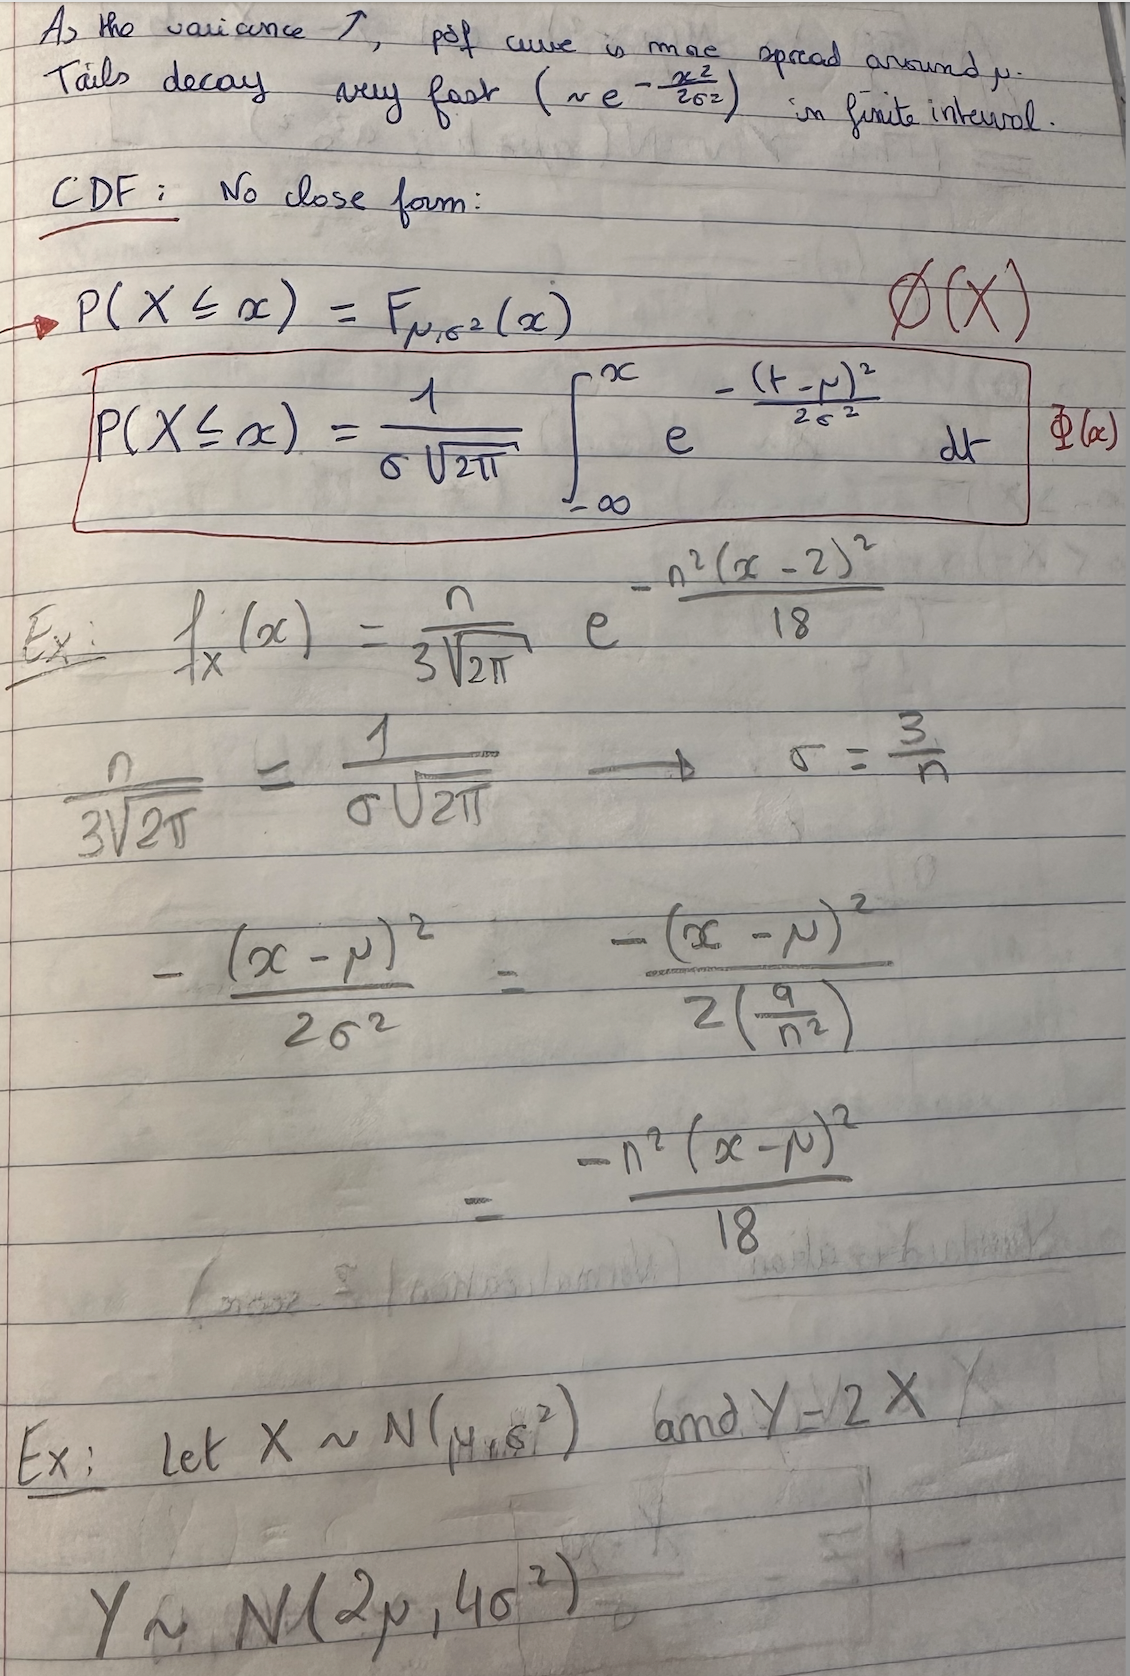 As the variance ↑, pdf curve is more spread around μ.
Tails decay very fast (~ e^{-x²/2σ²}) in finite interval.
CDF: No close form:
P(X ≤ x) = F_{μ,σ²}(x) ø(X)
P(X ≤ x) = 1/(σ√2π) ∫_{-∞}^{x} e^{-(t-μ)²/2σ²} dt Φ(x)
Ex: f_X(x) = n/(3√2π) e^{-n²(x-2)²/18}
n/(3√2π) = 1/(σ√2π) → σ = 3/n
-(x-μ)²/2σ² = -(x-μ)²/2(9/n²)
= -n²(x-μ)²/18
Ex: Let X ~ N(μ,σ²) and Y = 2X
Y ~ N(2μ, 4σ²)